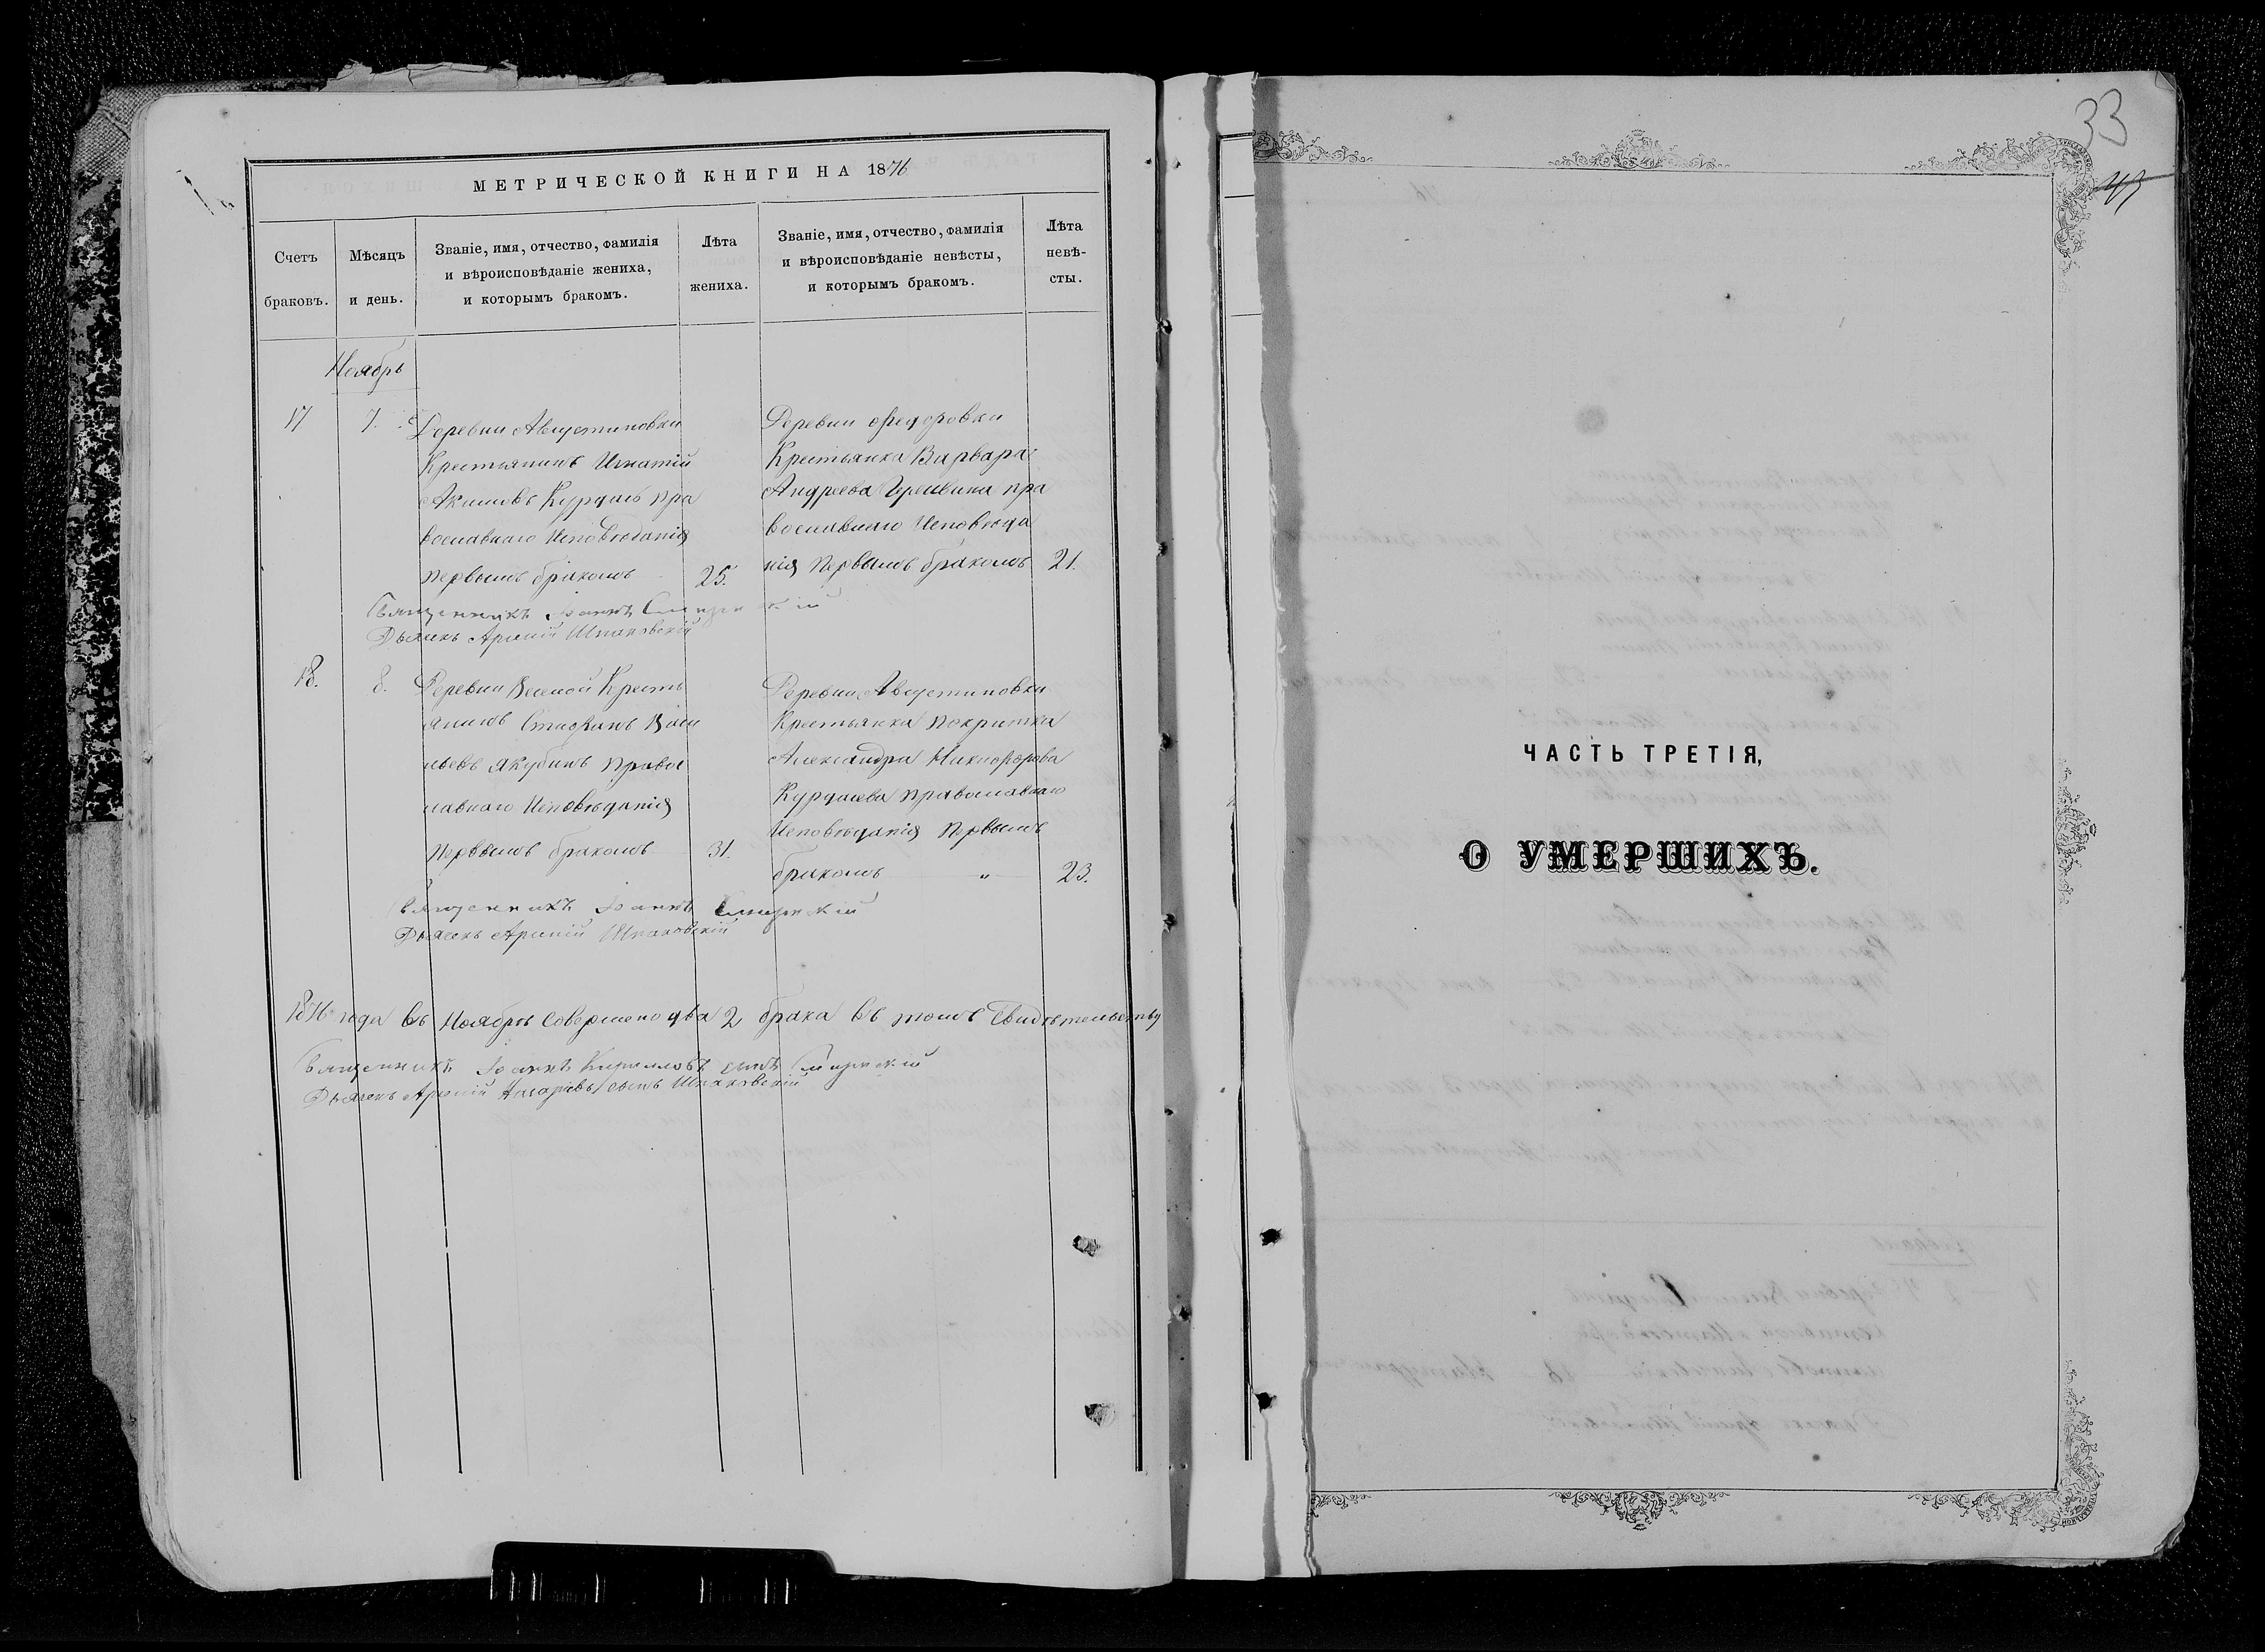 МЕТРИЧЕСКОЙ КНИГИ НА 1876
Счетъ браковъ.
Мѣсяцъ и день.
Званіе, имя, отчество, фамилія
и вѣроисповѣданіе жениха,
и которымъ бракомъ.
Лѣта жениха.
Званіе, имя, отчество, фамилія
и вѣроисповѣданіе невѣсты,
и которымъ бракомъ.
Лѣта невѣ-
сты.
Ноябрь
17
7.
Деревни Августиновки
Крестьянинъ Игнатій
Акимовъ Курдась пра
вославнаго Исповѣданія
первымъ бракомъ
25.
Деревни Федоровки
Крестьянка Варвара
Андреева пра
вославнаго Исповѣда
нія Первымъ бракомъ
21.
Священникъ Іоаннъ
Дьячекъ Арсеній Шпаковскій
18.
8.
Деревни Весёлой Кресть
янинъ Стефанъ Васи
льевъ Якубинъ Правос
лавнаго Исповѣданія
Первымъ бракомъ
31.
Деревни Августиновки
Крестьянка покритка
Александра Никифорова
Курдасева Православнаго
Исповѣданія Первымъ
бракомъ "
23.
Священникъ Іоаннъ
Дьячекъ Арсеній Шпаковскій
1876 года въ Ноябрѣ Совершено два 2 брака въ томъ Свидѣтельству
Священникъ Іоаннъ Кирилловъ сынъ
Дьячекъ Арсеній Назаріевъ сынъ Шпаковскій
33
ЧАСТЬ ТРЕТІЯ,
О УМЕРШИХЪ.